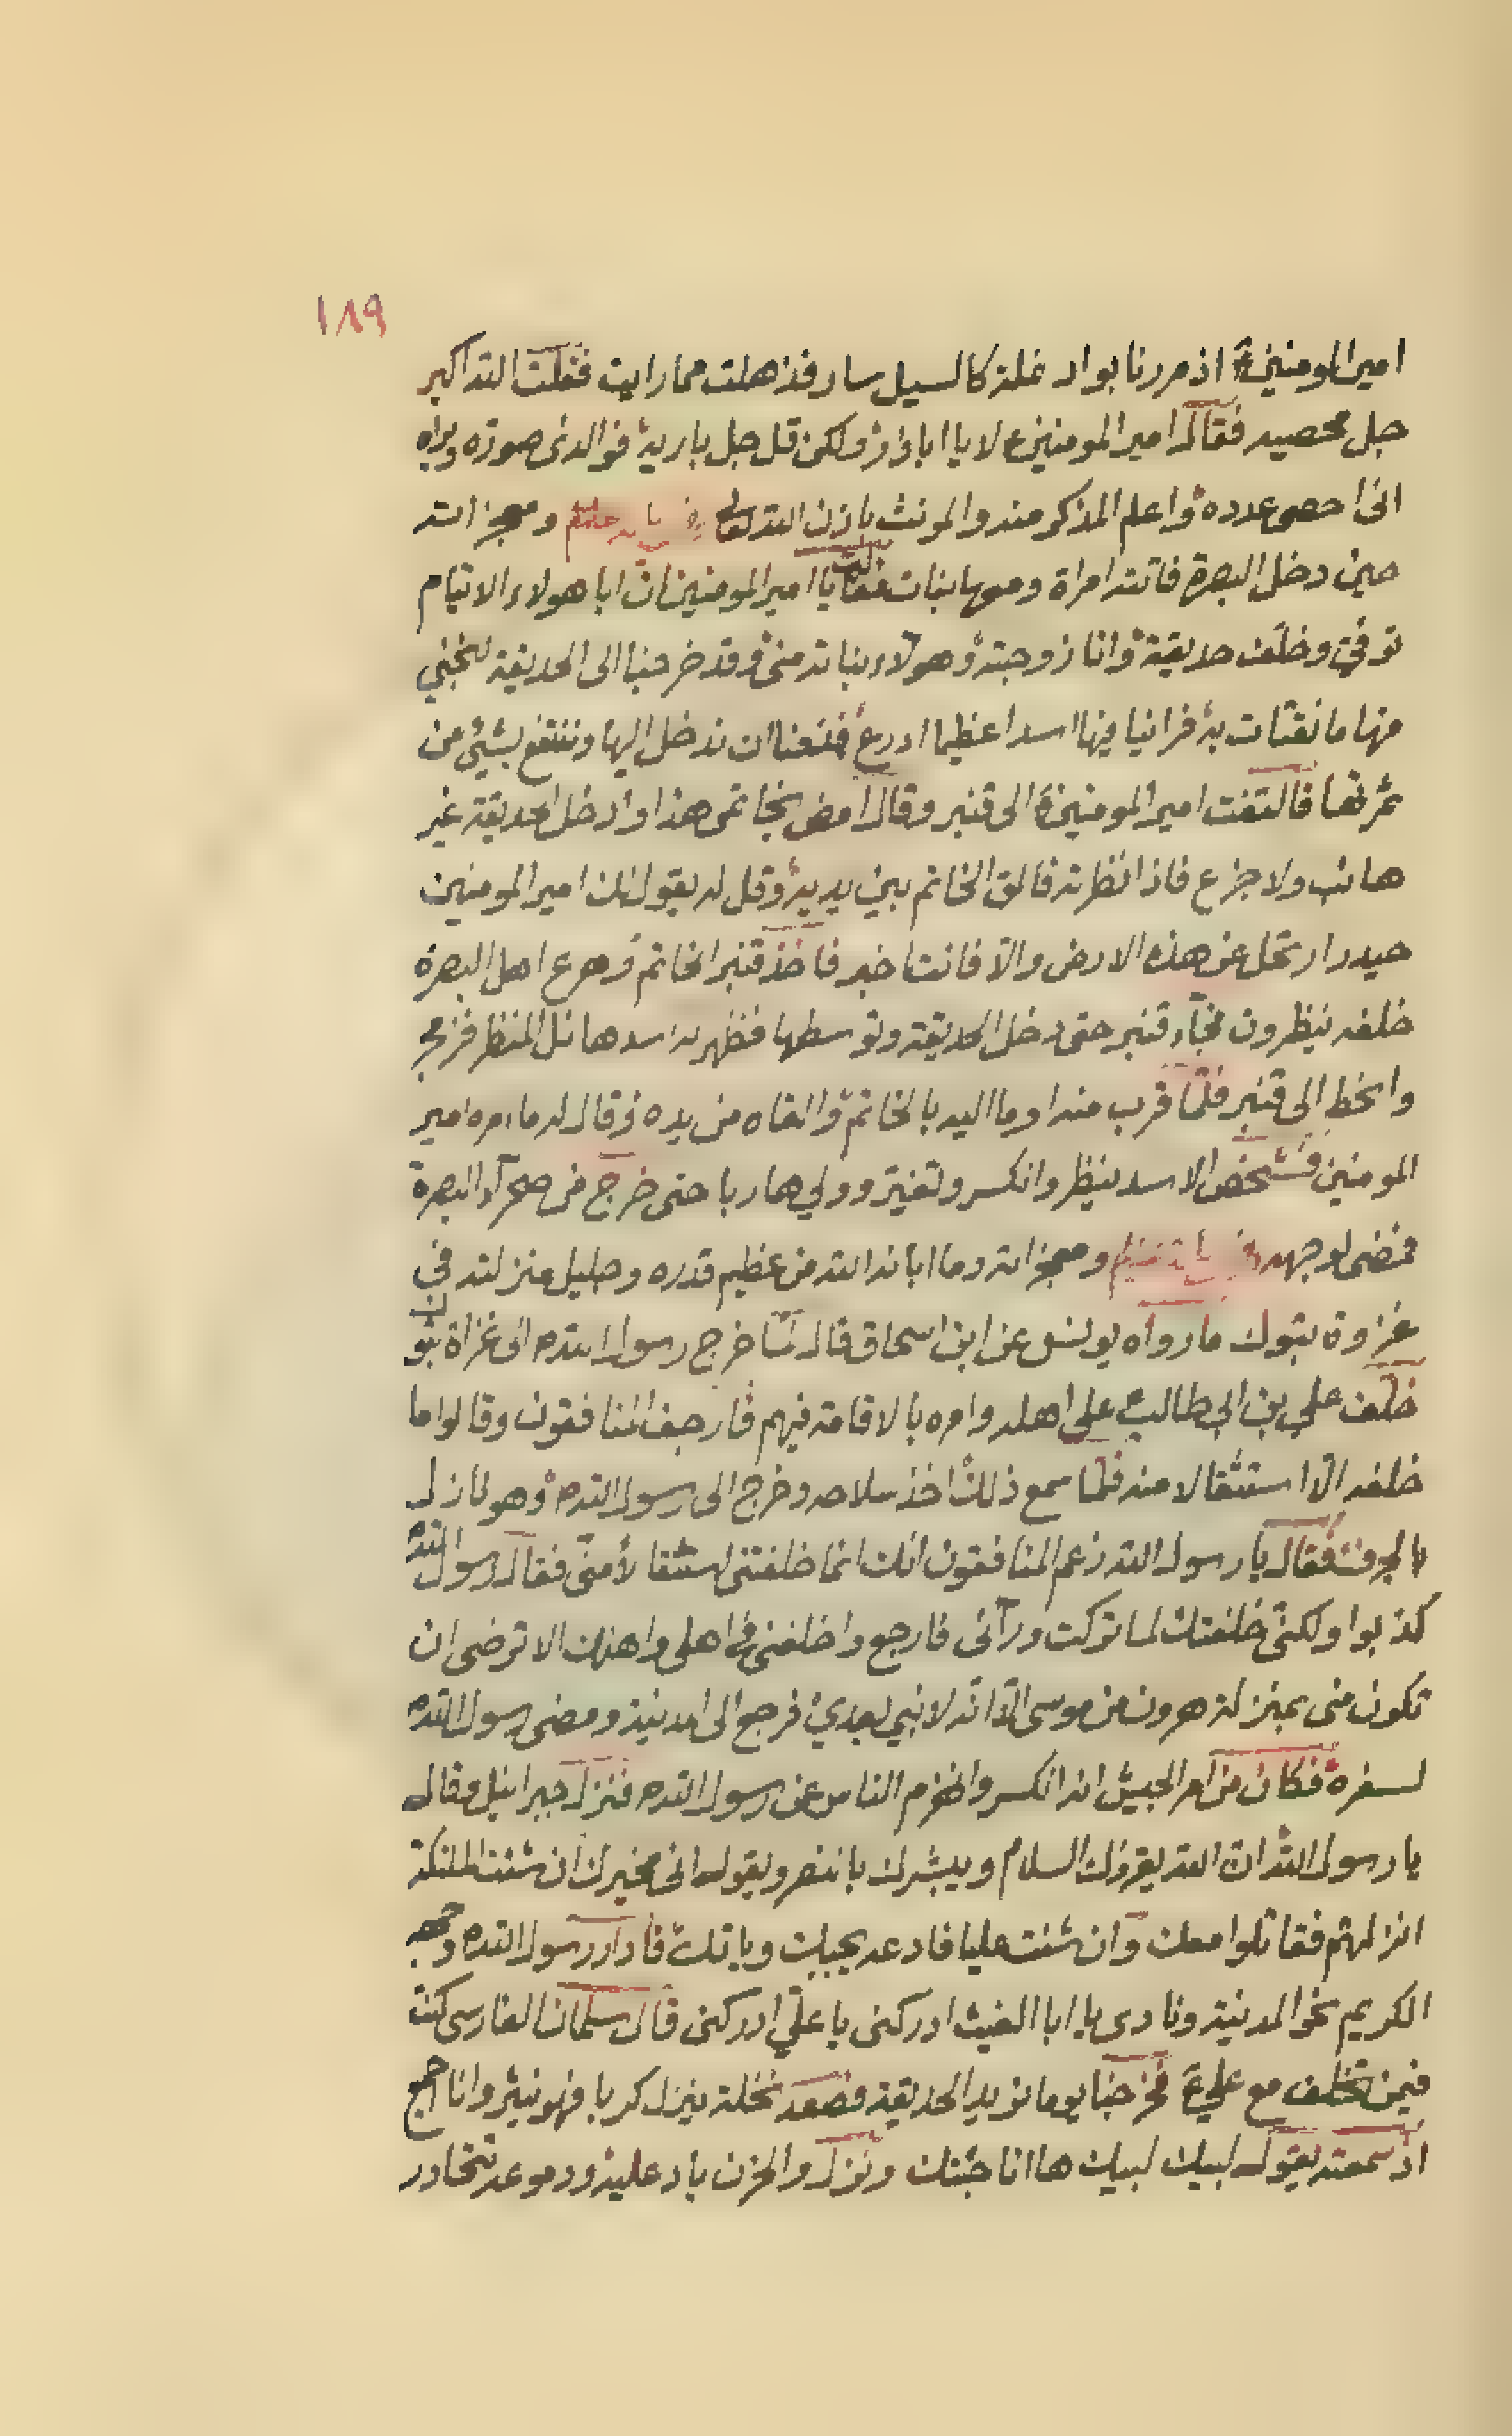 ١٨٩
امير المومنين ع اذ مررنا بواد نمله كالسيل سار فذهلت مما رايت فقلت الله اكبر
جل محصيه فقال امير المومنين ع لا يا اباذر ولكن قل جل باريه فوالذي صوره وبراه
اني احصى عدده واعلم المذكر منه والمونث باذن الله تعالى ومعجزاته
حين دخل البصرة فاتته امراة ومعها بنات فقالت يا امير المومنين ان ابا هولاء الايتام
توفى وخلف حديقة وانا زوجته وهولاء بناته منى وقد خرجنا الى الحديقة لنجني
منها ما نقتات به فراينا فيها اسدا عظيما ادرع فمنعنا ان ندخل اليها وننتفع بشيئ من
ثمرتها فالتفت امير المومنين ع الى قنبر وقال امض بخاتمى هذا وادخل الحديقة غير
هائب ولا جزع فاذا نظرته فالق الخاتم بين يديه وقل له يقول لك امير المومنين
حيدر ارتحل عن هذه الارض والا فانت اخبر فاخذ قنبر الخاتم وهرع اهل البصرة
خلفه ينظرون فجاء قنبر حتى دخل الحديقة وتوسطها فظهر له اسد هائل المنظر فزمجر
وانحط الى قنبر فلما قرب منه اوما اليه بالخاتم والقاه من يده وقال له ما امره امير
المومنين فشخص الاسد ينظر وانكسر وتغير وولي هاربا حتى خرج من صحراء البصرة
فمضى لوجهه ومعجزاته وما ابانه الله من عظيم قدره وجليل منزلته في
غزوة بتوك ما رواه يونس عن ابن اسحاق قال لما خرج رسول الله ص الى غزاة بتوك
خلف علي بن ابي طالب ع على اهله وامره بالاقامة فيهم فارجف المنافقون وقالوا ما
خلفه الا استثقالا منه فلما سمع ذلك اخذ سلاحه وخرج الى رسول الله ص وهو نازل
بالجرف فقال يا رسول الله زعم المنافقون انك انما خلفتنى استثقالا منى فقال رسول الله
كذبوا ولكنى خلفتك لما تركت ورآئى فارجع واخلفنى فى اهلى واهلك الا ترضى ان
تكون منى بمنزلة هرون من موسى الا انه لا نبي بعدي فرجع الى المدينة ومضى رسول الله ص
لسفره فكان من امر الجيش انه انكسر وانهزم الناس عن رسول الله ص فنزل جبرائيل وقال
يا رسول الله ان الله يقرئك السلام ويبشرك بالنصر ويقول انى مخيرك ان شئت الملئكة
انزلهم فقاتلوا معك وان شئت عليا فادعه يجيبك وياتك فادار رسول الله ص وجهه
الكريم نحو المدينة ونادى يا ابا الغيث ادركنى يا علي ادركنى قال سلمان الفارسى كنت
فيمن تخلف مع علي ع فخرجنا يوما نريد الحديقة فصعد نخلة ينزل كربا فهو ينثر وانا اجمع
اذ سمعته يقول لبيك لبيك ها انا جئتك ونزل والحزن باد عليه ودموعه تتحادر